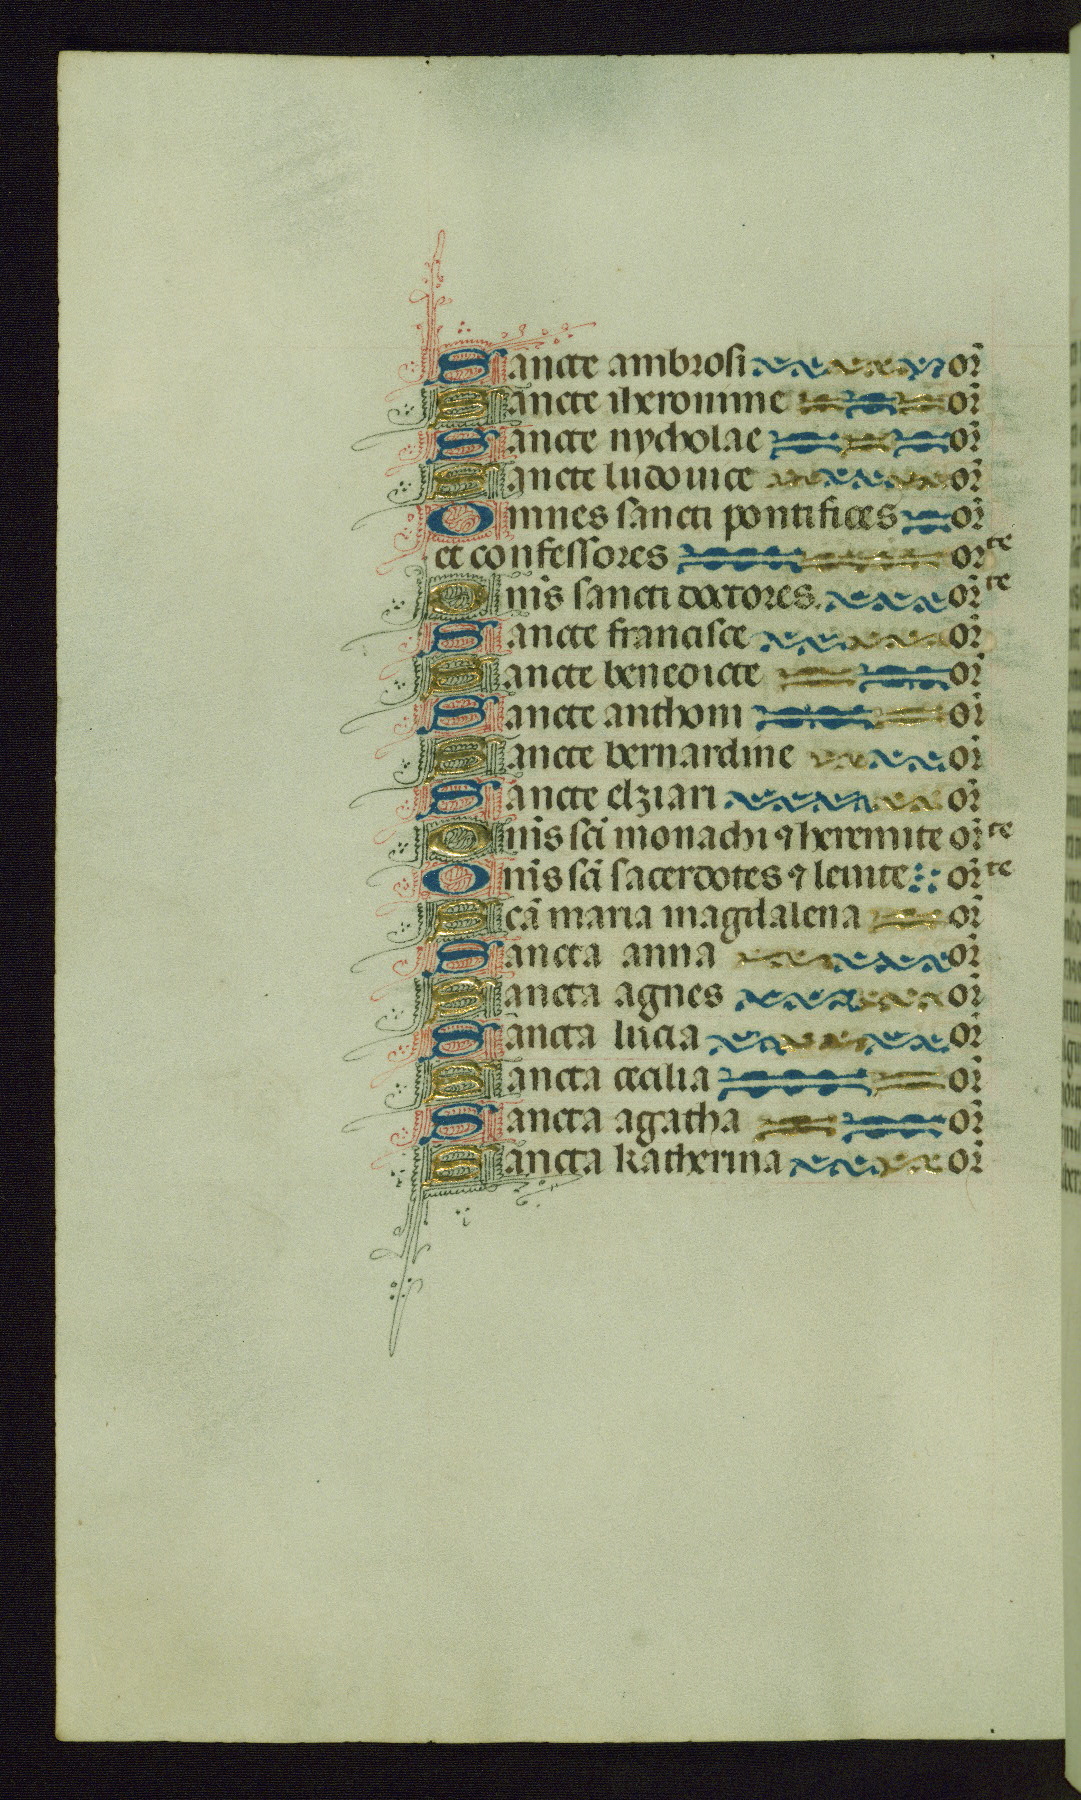 Sancte ambrosi or̄
Sancte iheronime or̄
Sancte nycholae or̄
Sancte ludouice or̄
Omnes sancti pontifices or̄
et confessores or̄te
Om̄s sancti doctores. or̄te
Sancte francisce or̄
Sancte benedicte or̄
Sancte anthoni or̄
Sancte bernardine or̄
Sancte elziari or̄
Om̄s sc̄i monachi ⁊ heremite or̄te
Om̄s sc̄i sacerdotes ⁊ leuite or̄te
Scā maria magdalena or̄
Sancta anna or̄
Sancta agnes or̄
Sancta lucia or̄
Sancta cecilia or̄
Sancta agatha or̄
Sancta katherina or̄